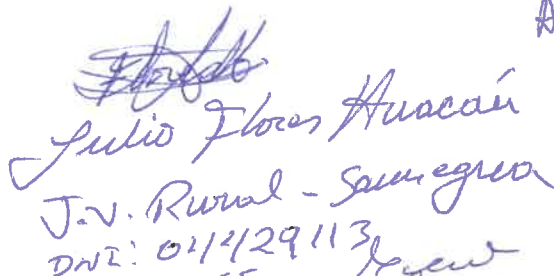 Julio Flores Huacán
J.V. Rural - Samegua
DNI: 04429113